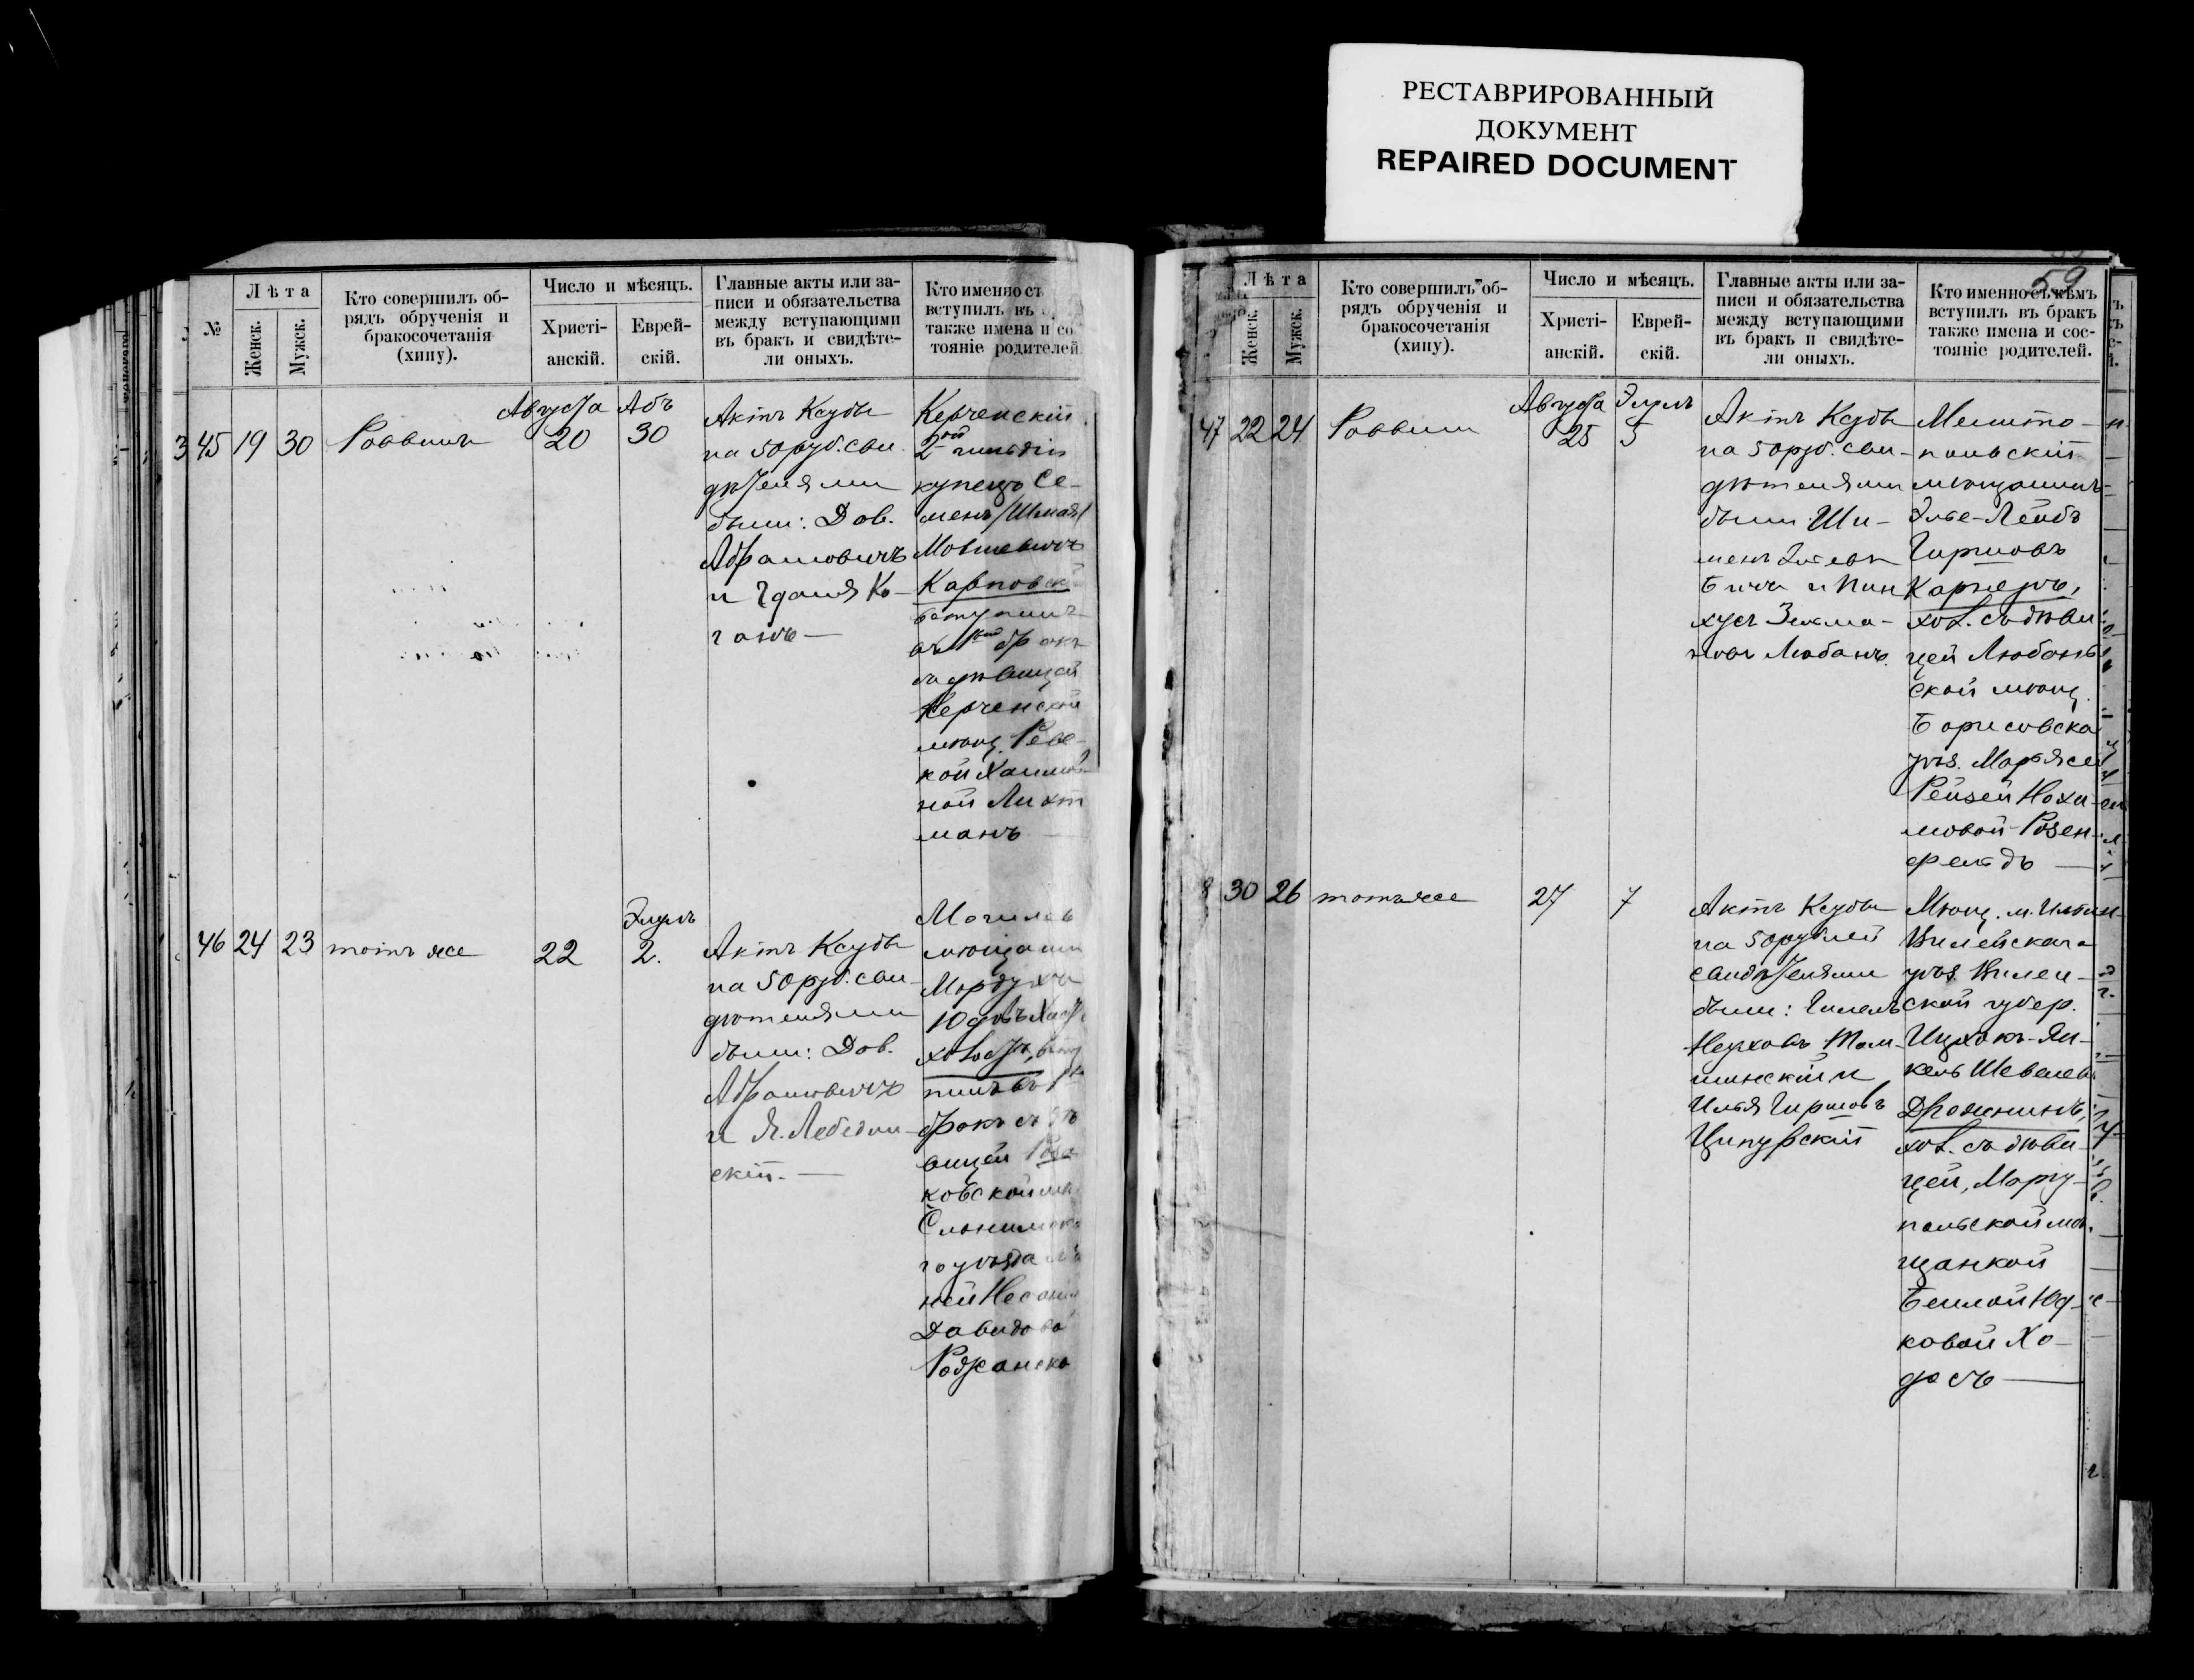 РЕСТАВРИРОВАННЫЙ
ДОКУМЕНТ
REPAIRED DOCUMENT
№
Лѣта
Женск.
Мужск.
Кто совершилъ об-
рядъ обрученія и
бракосочетанія
(хипу).
Число и мѣсяцъ.
Христі-
анскій.
Еврей-
скій.
Главные акты или за-
писи и обязательства
между вступающими
въ бракъ и свидѣте-
ли оныхъ.
Кто именно съ
вступилъ въ
также имена и со
тояніе родителей.
45 19 30 Раввинъ
Августа
20
Абъ
30
Актъ Ксубы
на 50 руб. сви-
дѣтелями
были: Дов.
Абрамовичъ
и Гдаля Ко-
ганъ
Керченскій
2ой гильдіи
купецъ Се-
менъ (Шмая)
Мовшевичъ
Карповскій
вступилъ
въ бракъ
съ дѣвицей
Керченской
мѣщ. Реве-
кой Хаимов
ной Лихт
манъ
46 24 23 тотъ же
22
Элулъ
2.
Актъ Ксубы
на 50 руб. сви-
дѣтелями
были: Дов.
Абрамовичъ
и Я. Лебедин-
скій.
Могилев
мѣщани
Мордухъ
холостъ, всту
пилъ въ
бракъ съ дѣ
вицей
ковской мѣ
Слонимска
го уѣзда
Давидово
Роджанско
59
Лѣта
Женск.
Мужск.
Кто совершилъ об-
рядъ обрученія и
бракосочетанія
(хипу).
Число и мѣсяцъ.
Христі-
анскій.
Еврей-
скій.
Главные акты или за-
писи и обязательства
между вступающими
въ бракъ и свидѣте-
ли оныхъ.
Кто именно съ кѣмъ
вступилъ въ бракъ
также имена и сос-
тояніе родителей.
47 22 24 Раввинъ
Августа
25
Элулъ
5
Актъ Ксубы
на 50 руб. сви-
дѣтелями
были: Ши-
менъ
и Пин
хусъ Зелма-
новъ Любанъ.
Мелито-
польскій
мѣщанинъ
Элье-Лейбъ
Гиршовъ
Карнеръ,
хол. съ дѣви
цей Любань
ской мѣщ.
Борисовска
уѣз. Марьясей
Рейзей Нохи-
мовой Розен-
фельдъ
8 30 26 тотъ же
27
7
Актъ Ксубы
на 50 рублей
свидѣтелями
были:
и
Илья Гиршовъ
Ципурскій
Мѣщ. м. Ильи
Вилейскаго
уѣз. Вилен-
ской губер.
Ицхокъ-Ян-
кель Шевелевъ
хол. съ дѣви-
цей, Маріу-
польской мѣ-
щанкой
Бейлой Юд-
ковой Хо-
досъ